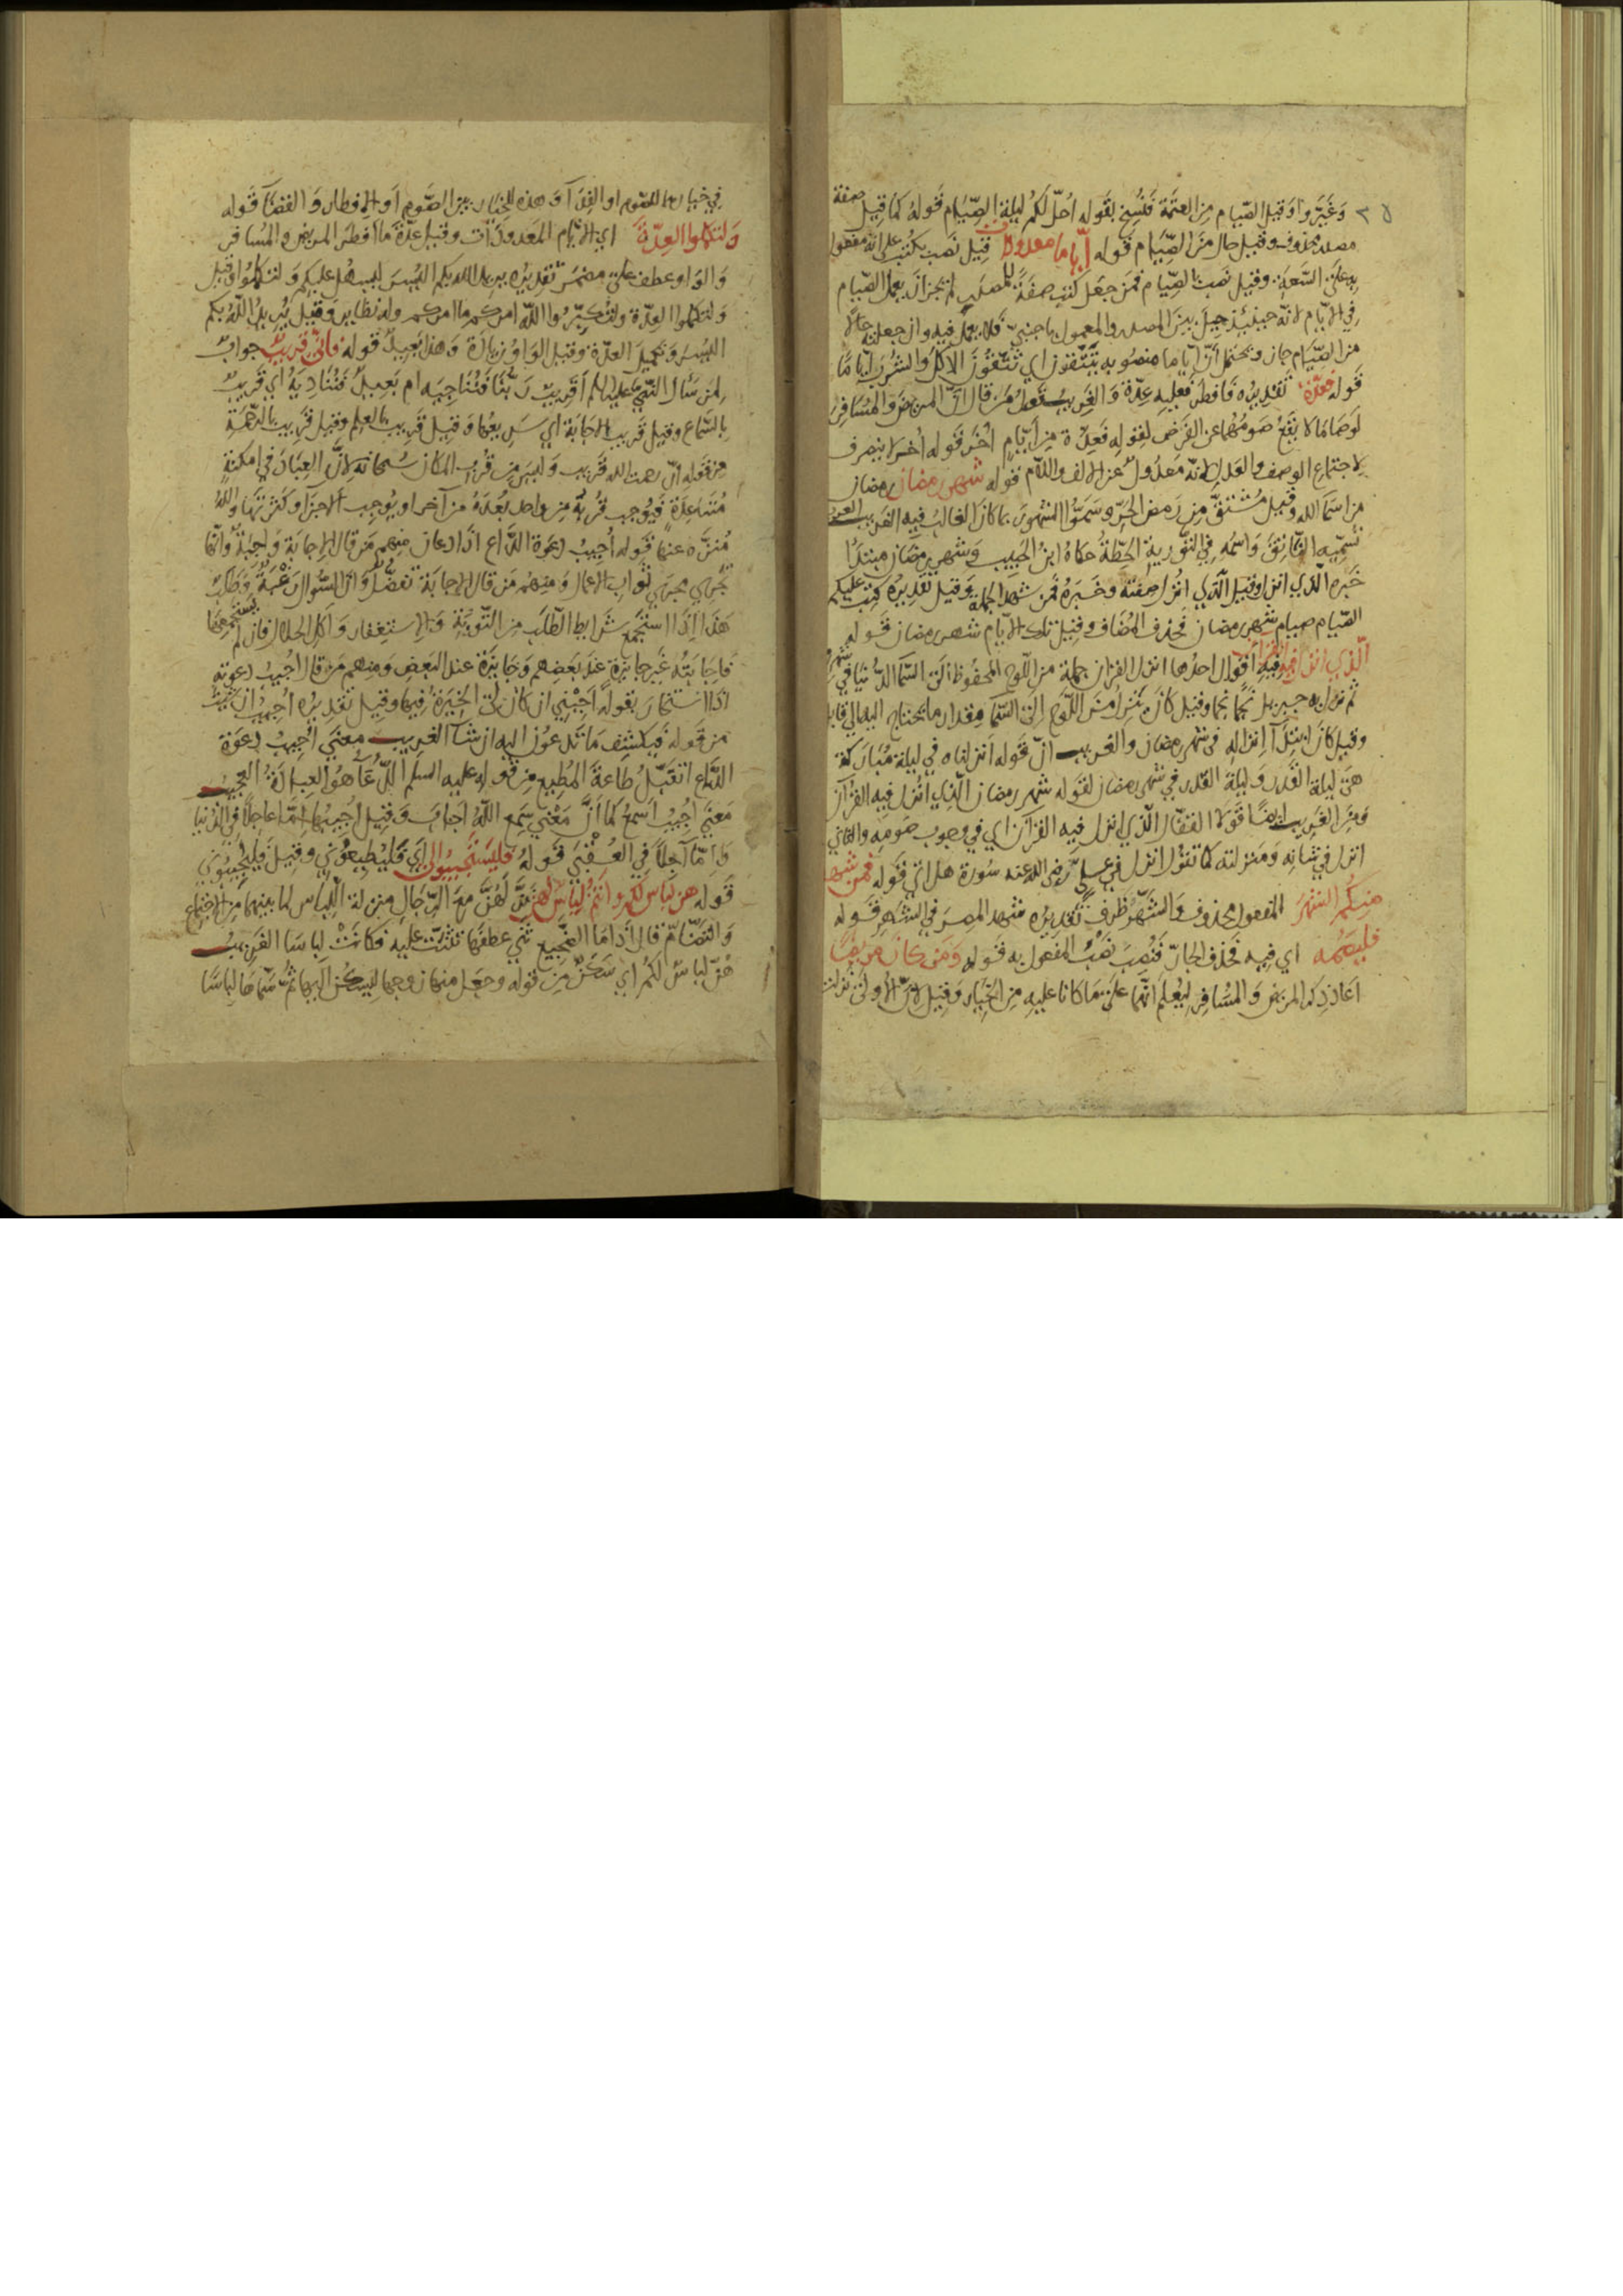 ٢٥ وغيروا وقيل الصيام من العتمة فنسخ بقوله احل لكم ليلة الصيام قوله كما قيل صفة
مصدر محذوف وقيل حال من الصيام قوله اياما معدودات قيل نصب بكتب على انه مفعول
به على السعة وقيل نصب بالصيام فمن جعل كتب صفة للمصدر لم يجز ان يعمل الصيام
في الايام لانه حينئذ حيل بين المصدر والمعمول باجنبي فلا يعمل فيه وان جعلته حالا
من الصيام جاز ويحتمل ان اياما منصوبه بتتقون اي تتقون الاكل والشرب اياما
قوله فعدة تقديره فافطر فعليه عدة والغريب قول من قال ان المريض والمسافر
لو صاما لا يقع صومهما عن الفرض لقوله فعدة من ايام اخر قوله اخر لا ينصرف
لاجتماع الوصف والعدل لانه معدول عن الالف واللام قوله شهر رمضان رمضان
من اسما الله وقيل مشتق من رمض الحر وسموا الشهور بما كان الغالب فيه الغريب العرب
تسميه الناتق واسمه في التورية الحطة حكاه ابن الحبيب وشهر رمضان مبتدا
خبره الذي انزل وقيل الذي انزل صفته وخبره فمن شهد الجملة وقيل تقديره كتب عليكم
الصيام صيام شهر رمضان فحذف المضاف وقيل تلك الايام شهر رمضان قوله
الذي انزل فيه القران فيه اقوال احدها انزل القران جملة من اللوح المحفوظ الى السما الدنيا في شهر
ثم نزل به جبريل نجما نجما وقيل كان ينزل من اللوح الى السما مقدار ما تحتاج اليه الى قابل
وقيل كان ابتدآ انزاله في شهر رمضان والغريب ان قوله انزلناه في ليلة مباركة
هي ليلة القدر وليلة القدر في شهر رمضان لقوله شهر رمضان الذي انزل فيه القرآن
ومن الغريب ايضا قولا القفال الذي انزل فيه القرآن اي في وجوب صومه والثاني
انزل في شانه ومنزلته كما تقول انزل في علي رضى الله عنه سورة هل اتى قوله فمن شهد
منكم الشهر المفعول محذوف والشهر ظرف تقديره شهد المصر في الشهر قوله
فليصمه اي فيه فحذف الجار فنصب نصب المفعول به قوله ومن كان مريضا
اعاد ذكر المريض والمسافر ليعلم انهما على ما كانا عليه من الخيار وقيل لان الاولى نزلت
في خيارها للصوم او الفدآ وهذه الخيار بين الصوم او الافطار والقضآ قوله
ولتكملوا العدة اي الايام المعدودات وقيل عدة ما افطر المريض والمسافر
والواو عطف على مضمر تقديره يريد الله بكم اليسر ليسهل عليكم ولتكملوا وقيل
ولتكملوا العدة ولتكبروا الله امركم ما امركم وله نظاير وقيل يريد الله بكم
اليسر وتكميل العدة وقيل الواو زيادة وهذا بعيد قوله فاني قريب جواب
لمن سأل النبي عليه السلم اقريب ربنا فنناجيه ام بعيد فنناديه اي قريب
بالسماع وقيل قريب الاجابة اي سريعها وقيل قريب بالعلم وقيل قريب بالرحمة
من قوله ان رحمت الله قريب وليس من قرب المكان سبحانه لان العباد في امكنة
متباعدة فيوجب قربة من واحد بعده من آخر او يوجب الاجزا وكثرتها والله
منزه عنها قوله اجيب دعوة الداع اذا دعان منهم من قال الاجابة واجبة وانها
تجري مجرى ثواب الاعمال ومنهم من قال الاجابة تفضل وان السوال رغبة وطلب
هذا اذا استجمع شرايط الطلب من التوبة والاستغفار واكل الحلال فان لم يستجمعها
فاجابته غير جايزة عند بعضهم وجايزة عند البعض ومنهم من قال اجيب دعوته
اذا استخار بقوله اجبني ان كان لي الخيرة فيها وقيل تقديره اجيب ان شئت
من قوله فيكشف ما تدعون اليه ان شآ الغريب معنى اجيب دعوة
الداع اتقبل طاعة المطيع من قوله عليه السلم الدعآ هو العبادة العجيب
معنى اجيب اسمع كما ان معنى سمع الله اجاب وقيل اجيبها اما عاجلا في الدنيا
واما آجلا في العقبى قوله فليستجيبوا لي اي فليطيعوني وقيل فليجيبوني
قوله هن لباس لكم وانتم لباس لهن هن من الرجال منزلة اللباس لما بينهما من الاجتماع
والتضام قال اذا ما الضجيع ثنى عطفها تثنت عليه فكانت لباسا الغريب
هن لباس لكم اي سكن من قوله وجعل منها زوجها ليسكن اليها ثم سماها لباسا